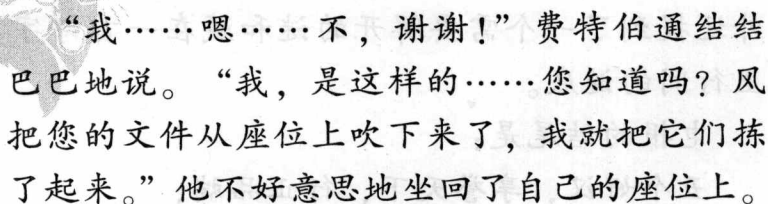 “我……嗯……不，谢谢！”费特伯通结结
巴巴地说。“我，是这样的……您知道吗？风
把您的文件从座位上吹下来了，我就把它们拣
了起来。”他不好意思地坐回了自己的座位上。